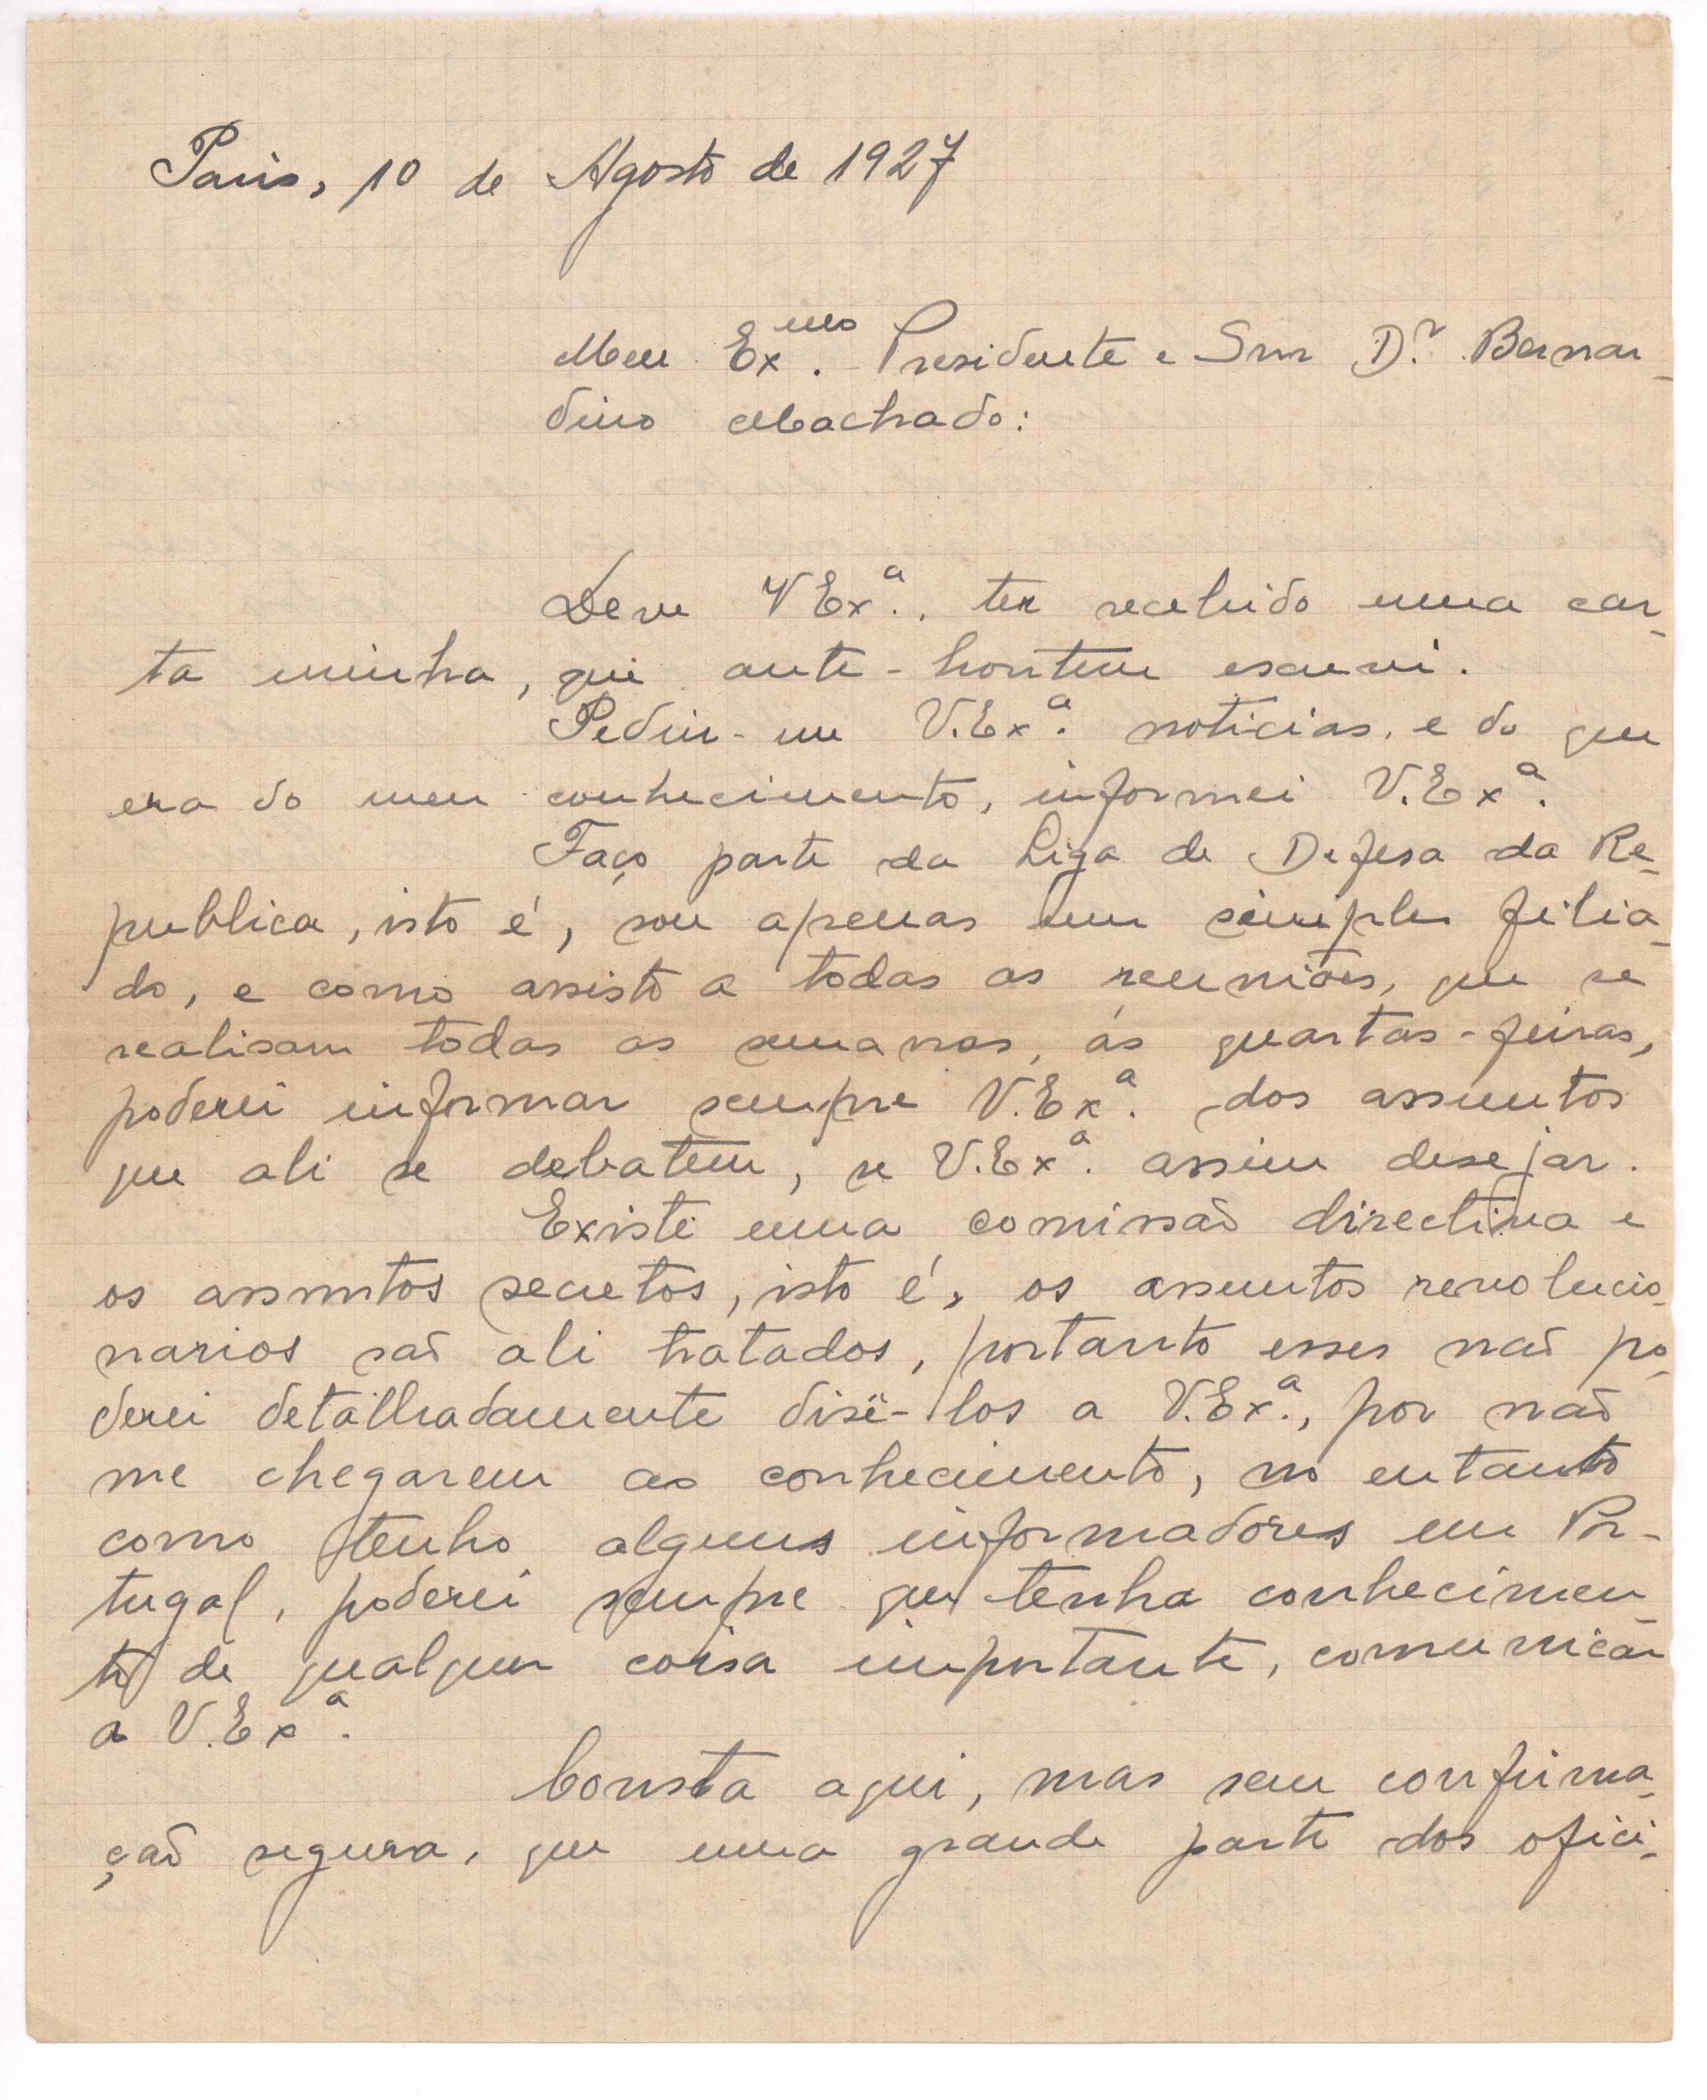 Paris, 10 de Agosto de 1927
Meu Ex.mo Presidente e Snr D.r Bernar-
dino Machado:
Deve V Ex.a. ter recebido uma car-
ta minha, que ante-hontem escrevi.
Pediu-me V.Ex.a noticias, e do que
era do meu conhecimento, informei V.Ex.a
Faço parte da Liga de Defesa da Re-
publica, isto é, sou apenas um simples filia-
do, e como assisto a todas as reuniões, que se
realisam todas as semanas, ás quartas-feiras,
poderei informar sempre V.Ex.a dos assuntos
que ali se debatem, se V.Ex.a assim desejar.
Existe uma comissão directiva e
os assuntos secretos, isto é, os assuntos revolucio-
narios são ali tratados, portanto esses não po-
derei detalhadamente disê-los a V.Ex.a, por não
me chegarem ao conhecimento, no entanto
como tenho alguns informadores em Por-
tugal, poderei sempre que tenha conhecimen-
to de qualquer coisa importante, comunicar
a V.Ex.a
Consta aqui, mas sem confirma-
ção segura, que uma grande parte dos ofici-